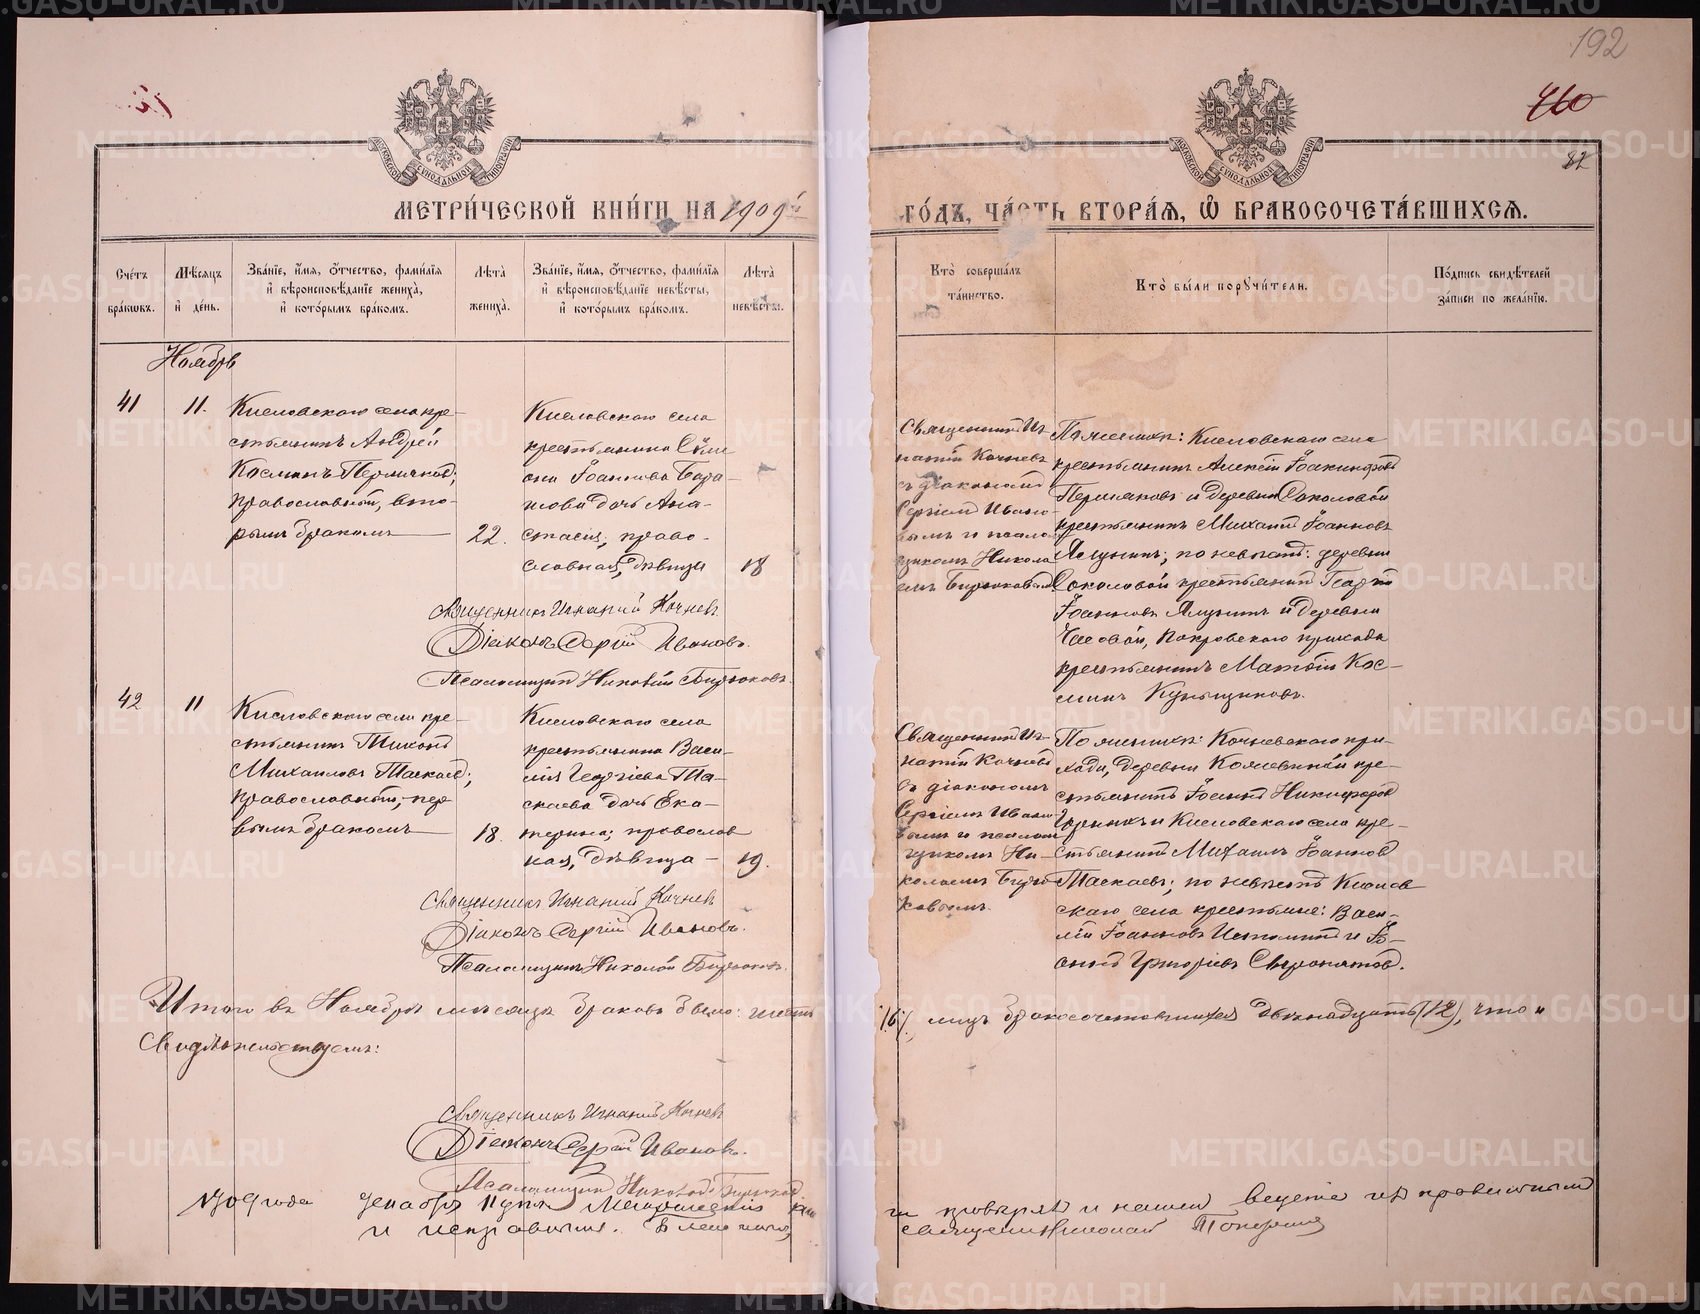 192
460
82
МОСКОВСКОЙ СѴНОДАЛЬНОЙ ТИПОГРАФІИ
МОСКОВСКОЙ СѴНОДАЛЬНОЙ ТИПОГРАФІИ
МЕТРИ́ЧЕСКОЙ КНИ́ГИ НА 1909й
ГО́ДЪ, ЧА́СТЬ ВТОРА́Ѧ, Ѡ҆ БРАКОСОЧЕТА́ВШИХСѦ.
Сче́тъ бра́кѡвъ.
Мѣ́сѧцъ и҆ де́нь.
Зва́нїе, и҆́мѧ, ѻ҆́тчество, фами́лїѧ и҆ вѣроисповѣ́данїе жениха̀, и҆ кото́рымъ бра́комъ.
Лѣ́та̀ жениха̀.
Зва́нїе, и҆́мѧ, ѻ҆́тчество, фами́лїѧ и҆ вѣроисповѣ́данїе невѣ́сты, и҆ кото́рымъ бра́комъ.
Лѣ́та̀ невѣ́сты.
Кто̀ соверша́лъ та́инство.
Кто̀ бы́ли порꙋчи́тели.
По́дпись свидѣ́телей за́писи по жела́нїю.
Ноябрь
41
11.
Кисловскаго села кре-
стьянинъ Андрей
Косминъ Пермяковъ;
православный, вто-
рымъ бракомъ
22.
Кисловскаго села
крестьянина Симе
она Іоаннова Бара-
нова дочь Ана-
стасія, право-
славная, дѣвица
18
Священникъ Иг-
натій Кочневъ
съ діакономъ
Сергіемъ Ивано-
вымъ и псалом
щикомъ Никола
емъ Бирюковымъ.
По женихѣ: Кисловскаго села
крестьянинъ Алексій Іоакимовъ
Пермяковъ и деревни Соколовой
крестьянинъ Михаилъ Іоанновъ
Ялунинъ; по невѣстѣ: деревни
Соколовой крестьянинъ Георгій
Іоанновъ Ялунинъ и деревни
Часовой, Покровскаго прихода
крестьянинъ Матѳій Кос-
минъ
Священникъ Игнатій Кочневъ.
Діаконъ Сергій Ивановъ.
Псаломщикъ Николай Бирюковъ.
42
11
Кисловскаго села кре-
стьянинъ Тихонъ
Михаиловъ Таскаевъ;
православный, пер
вымъ бракомъ
18.
Кисловскаго села
крестьянина Васи-
лія Георгіева Та-
скаева дочь Ека-
терина; православ
ная, дѣвица
19.
Священникъ Иг-
натій Кочневъ
съ діакономъ
Сергіемъ Ивано
вымъ и псалом
щикомъ Ни-
колаемъ Бирю
ковымъ.
По женихѣ: Кочневскаго при-
хода, деревни кре-
стьянинъ Іоаннъ Никифоровъ
и Кисловскаго села кре-
стьянинъ Михаилъ Іоанновъ
Таскаевъ; по невѣстѣ Кислов
скаго села крестьяне: Васи-
лій Іоанновъ и Іо-
аннъ Григоріевъ
Священникъ Игнатій Кочневъ
Діаконъ Сергій Ивановъ.
Псаломщикъ Николай Бирюковъ.
Итого въ Ноябрѣ мѣсяцѣ браковъ было: шесть
/6/, лицъ бракосочетавшихся двѣнадцать (12), что и
Свидѣтельствуемъ:
Священникъ Игнатій Кочневъ
Діаконъ Сергій Ивановъ.
Псаломщикъ Николай Бирюковъ
1909 года
и
Священникъ Николай
METRIKI.GASO-URAL.RU